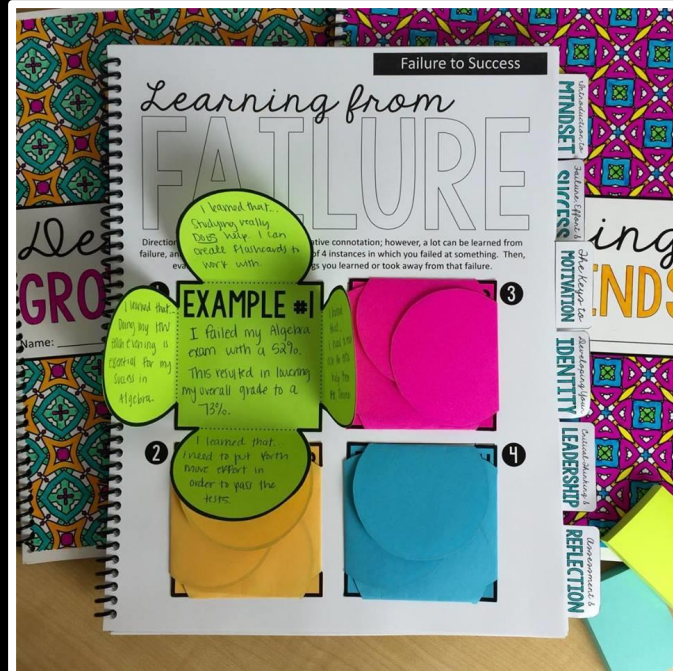 Failure to Success
Learning from
FAILURE
Direction
ative connotation; however, a lot can be learned from
failure, an
of 4 instances in which you failed at something. Then,
eva
gs you learned or took away from that failure.
I learned that...
Studying really
DOES help. I can
create flashcards to
work with.
EXAMPLE #1
I failed my Algebra
exam with a 52%.
This resulted in lowering
my overall grade to a
73%.
I learned that...
Doing my HW
each evening is
essential for my
success in
Algebra.
I learned that...
I need to put forth
more effort in
order to pass the
tests.
2
3
4
Introduction to
MINDSET
Failure, Effort &
SUCCESS
The Keys to
MOTIVATION
Developing Your
IDENTITY
Critical Thinking &
LEADERSHIP
Assessment &
REFLECTION
De
GRO
Name:
ing
INDS